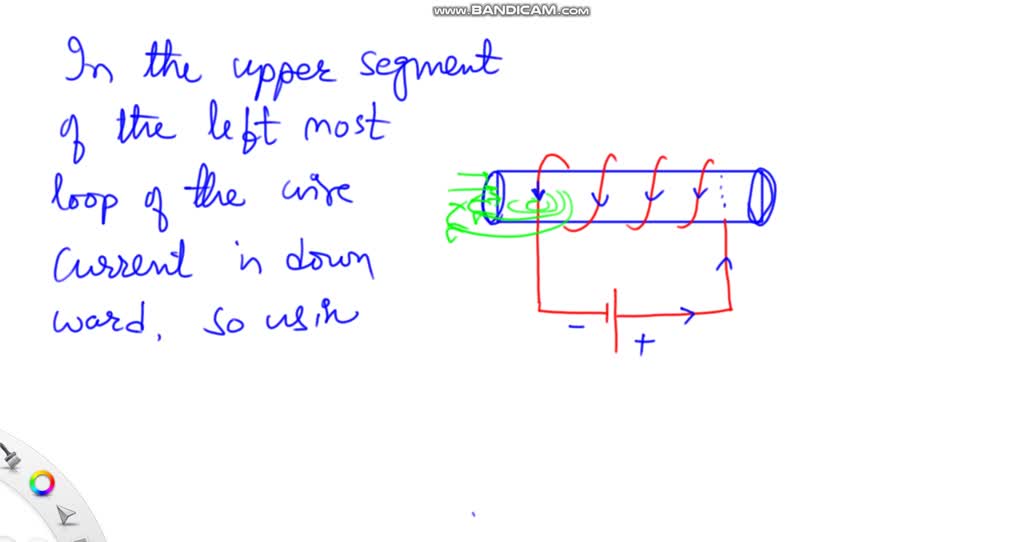 www.BANDICAM.com
In the upper segment
of the left most
loop of the wire
current in down
ward, so usin
- +